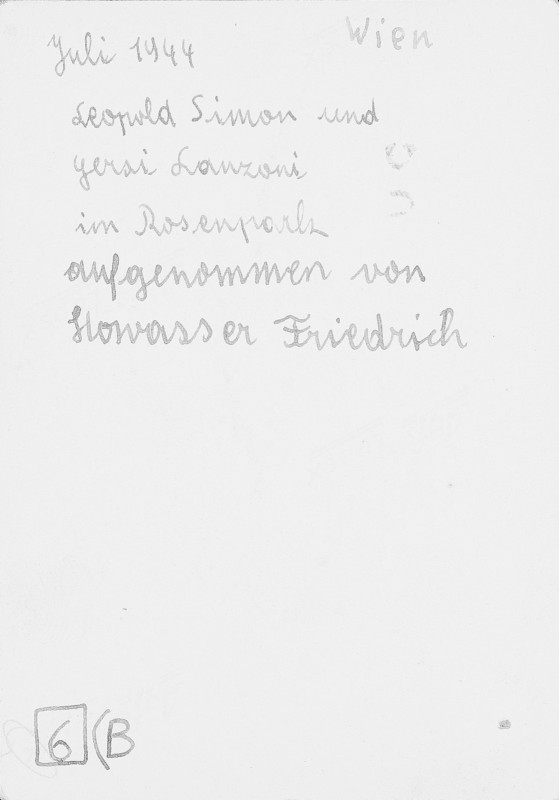 Wien
Juli 1944
Leopold Simon und
Gersi Lanzoni
im Rosenpark
aufgenommen von
Howasser Friedrich
6 (B